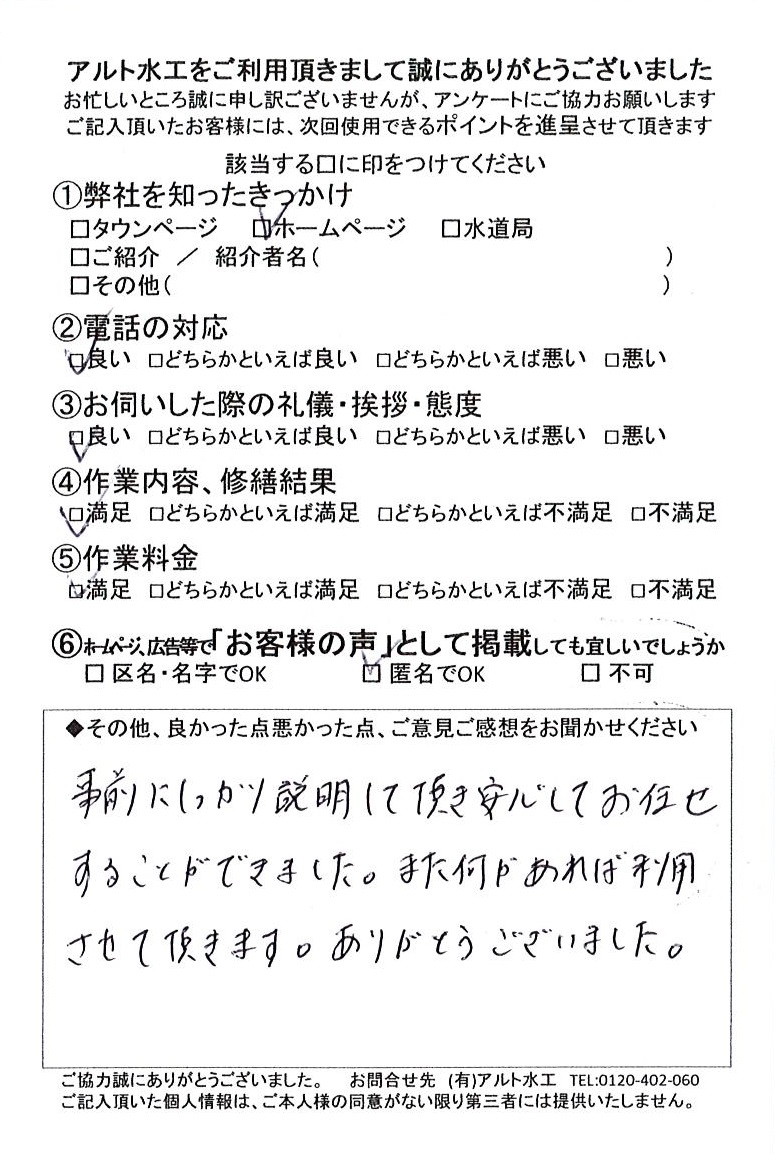 アルト水工をご利用頂きまして誠にありがとうございました
お忙しいところ誠に申し訳ございませんが、アンケートにご協力お願いします
ご記入頂いたお客様には、次回使用できるポイントを進呈させて頂きます
該当する□に印をつけてください
①弊社を知ったきっかけ
□タウンページ □ホームページ □水道局
□ご紹介 ／ 紹介者名( )
□その他( )
②電話の対応
□良い □どちらかといえば良い □どちらかといえば悪い □悪い
③お伺いした際の礼儀・挨拶・態度
□良い □どちらかといえば良い □どちらかといえば悪い □悪い
④作業内容、修繕結果
□満足 □どちらかといえば満足 □どちらかといえば不満足 □不満足
⑤作業料金
□満足 □どちらかといえば満足 □どちらかといえば不満足 □不満足
⑥ホームページ、広告等で「お客様の声」として掲載しても宜しいでしょうか
□ 区名・名字でOK □ 匿名でOK □ 不可
◆その他、良かった点悪かった点、ご意見ご感想をお聞かせください
事前にしっかり説明して頂き安心してお任せ
することができました。また何かあれば利用
させて頂きます。ありがとうございました。
ご協力誠にありがとうございました。 お問合せ先 (有)アルト水工 TEL:0120-402-060
ご記入頂いた個人情報は、ご本人様の同意がない限り第三者には提供いたしません。